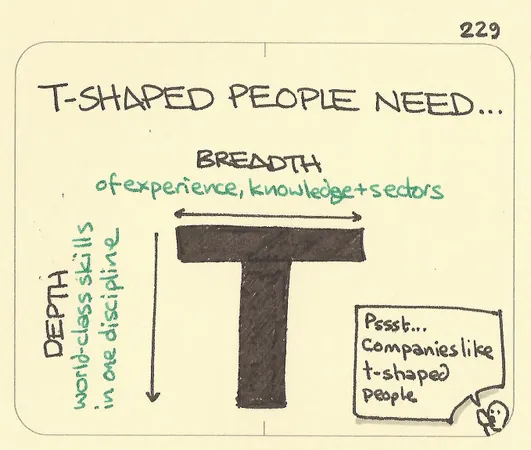 229
T-SHAPED PEOPLE NEED...
BREADTH
of experience, knowledge + sectors
DEPTH
world-class skills
in one discipline
T
Pssst...
Companies like
t-shaped
people